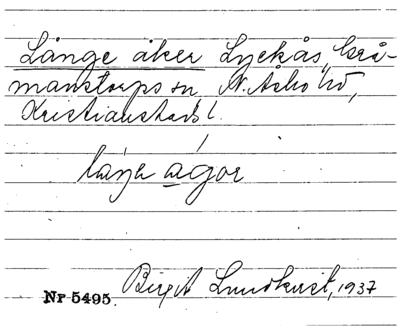 Långe åker Lyckås, Grå-
manstorps sn N. Åsbo hd,
Kristianstads l.
láŋa àgor
Nr 5495. Birgit Lundkvist, 1937